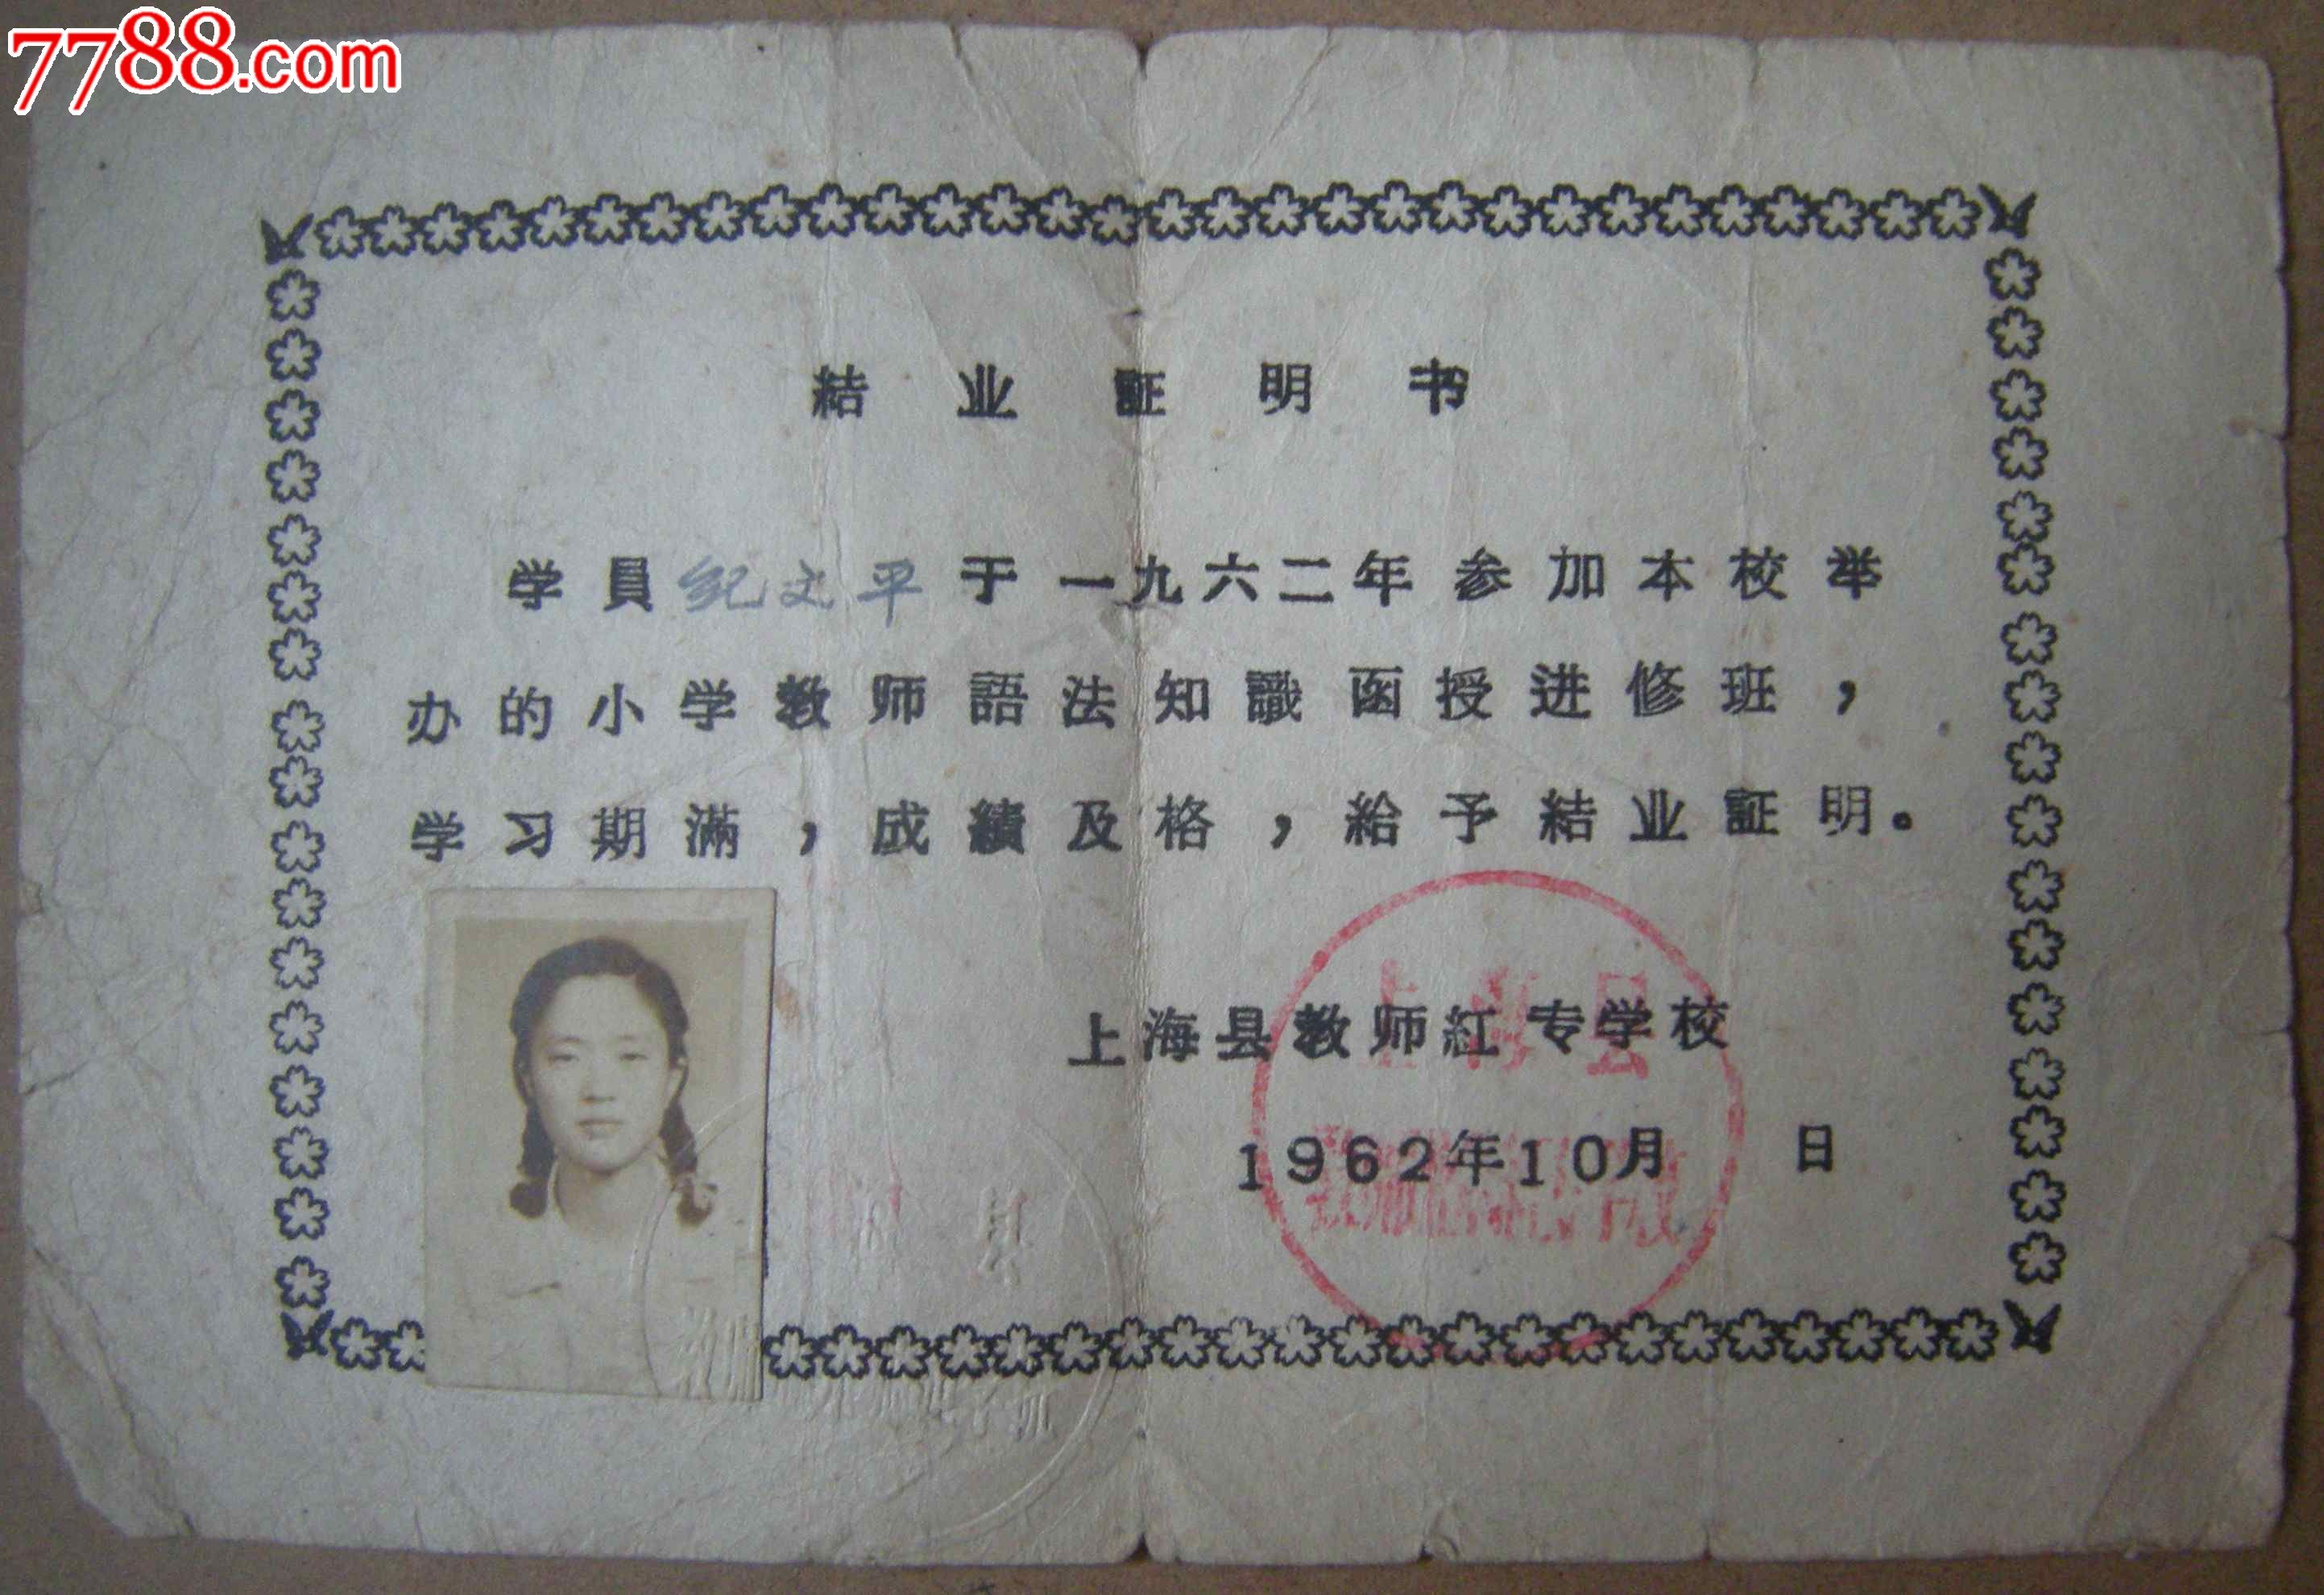 7788.com
結业証明书
学員纪文平于一九六二年参加本校举
办的小学教师語法知識函授进修班，
学习期滿，成績及格，給予結业証明。
上海县教师紅专学校
1962年10月 日
上海县